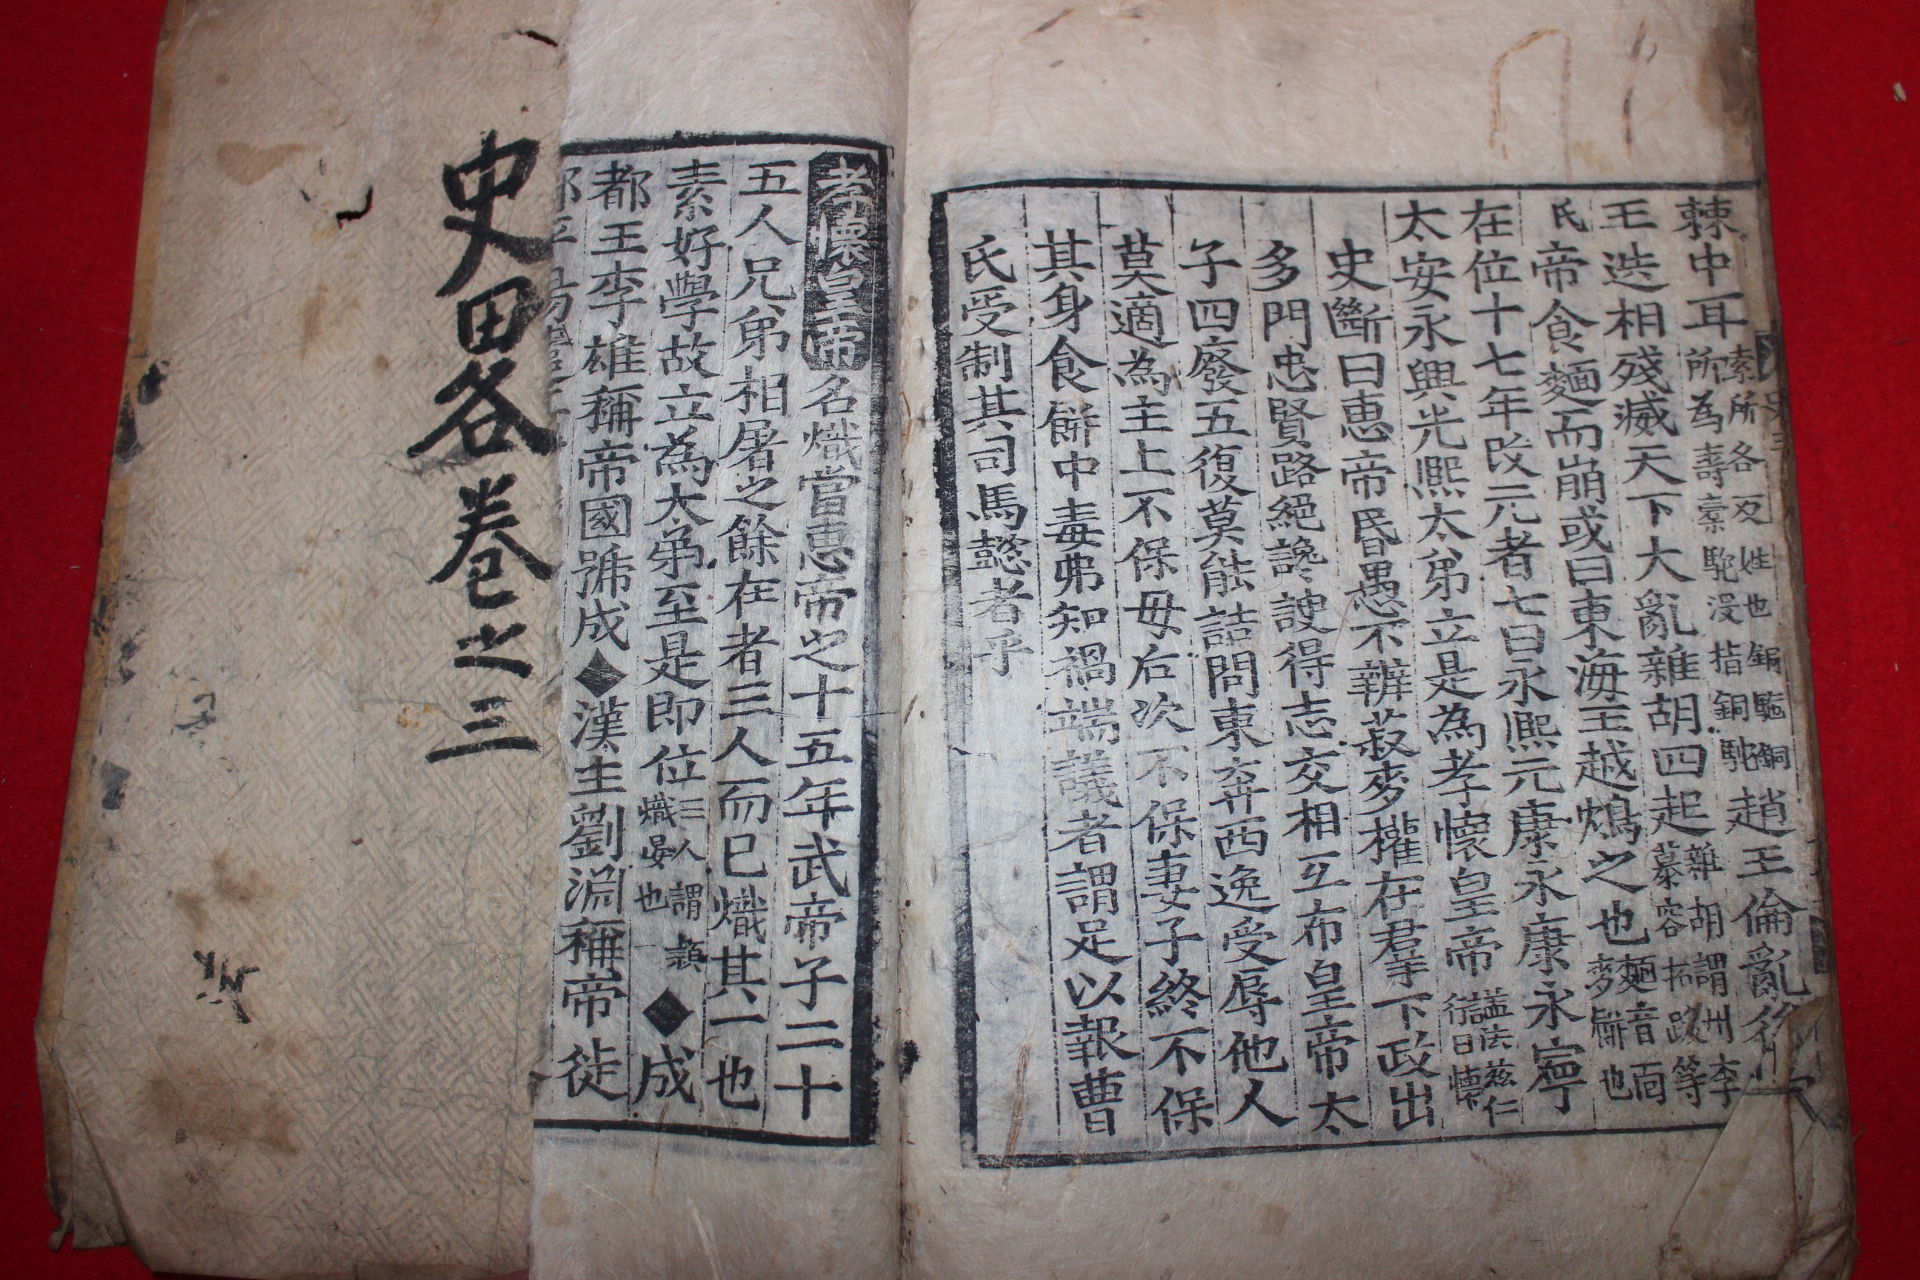 棘中耳索所各反姓也銅駝銅所為壽索駝沒指銅駝趙王倫亂後
王迭相殘滅天下大亂雜胡四起雜胡謂州李慕容拓跋等
氏帝食麵而崩或曰東海王越鴆之也麵音面麥餠也
在位十七年改元者七曰永熙元康永康永寧
太安永興光熙太弟立是為孝懷皇帝謚法慈仁行曰懷
史斷曰惠帝昏愚不辨菽麥權在羣下政出
多門忠賢路絕讒諛得志交相互布皇帝太
子四廢五復莫能詰問東弃西逸受辱他人
莫適為主上不保母后次不保妻子終不保
其身食餠中毒弗知禍端議者謂足以報曹
氏受制其司馬懿者乎
孝懷皇帝名熾當惠帝之十五年武帝子二十
五人兄弟相屠之餘在者三人而已熾其一也
素好學故立為大弟至是即位三人謂潁熾晏也◆成
都王李雄稱帝國號成◆漢主劉淵稱帝徒
史略卷之三